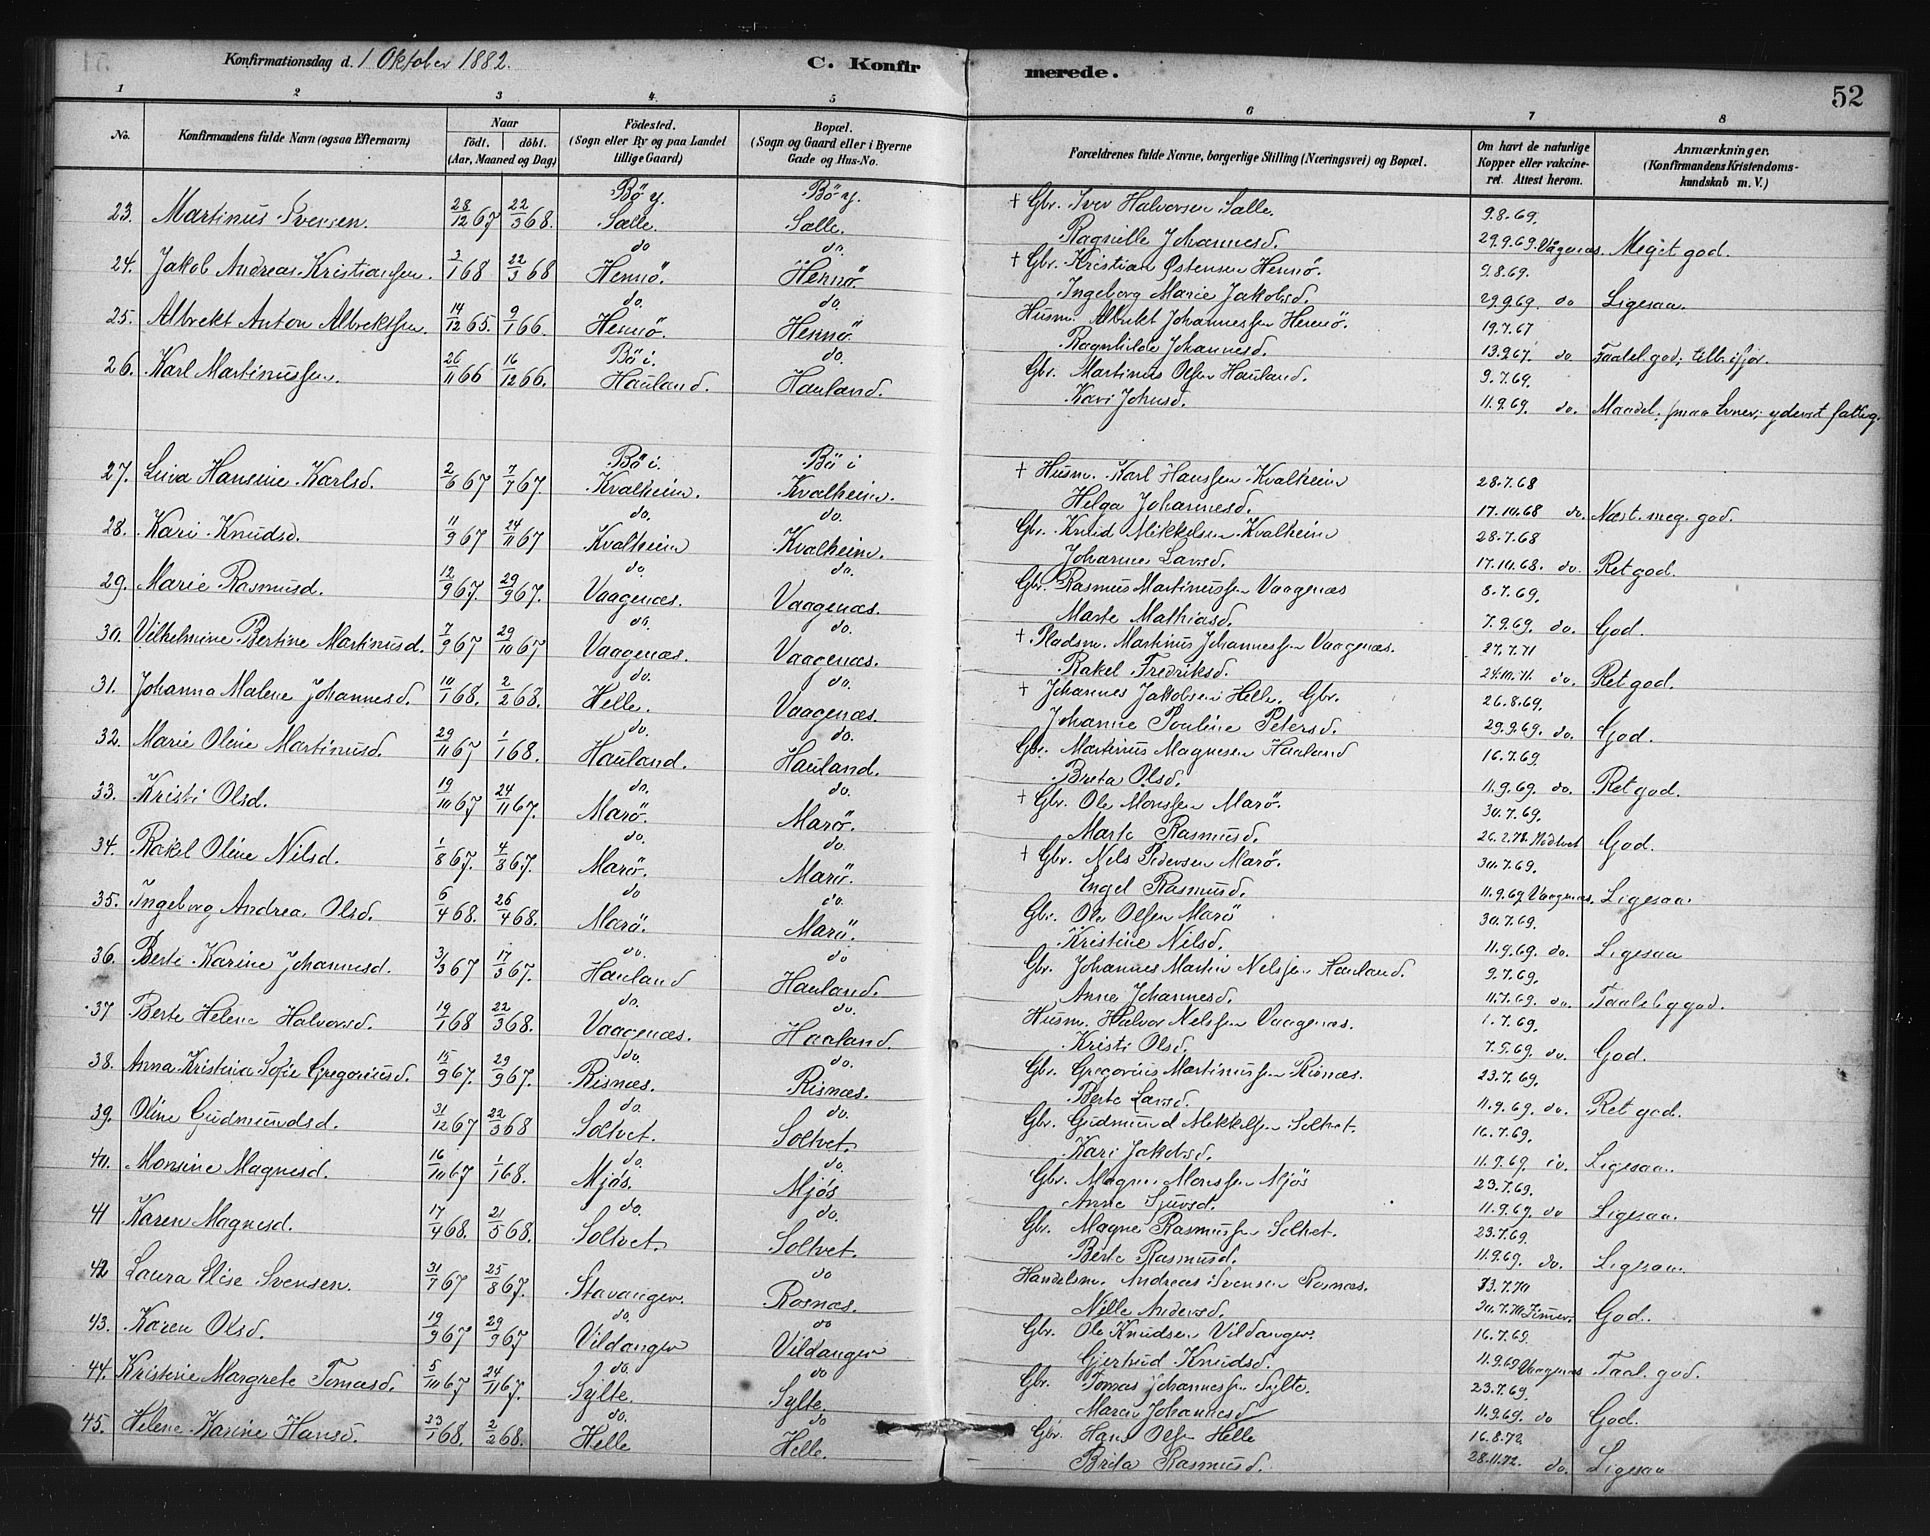 Konfirmationsdag d. 1 Oktober 1882.
C. Konfirmerede.
52
1 2 3 4 5 6 7 8
No.
Konfirmandens fulde Navn (ogsaa Efternavn)
Naar
födt. döbt.
(Aar, Maaned og Dag)
Födested.
(Sogn eller By og paa Landet
tillige Gaard)
Bopæl.
(Sogn og Gaard eller i Byerne
Gade og Hus-No.
Forældrenes fulde Navne, borgerlige Stilling (Næringsvei) og Bopæl.
Om havt de naturlige
Kopper eller vakcine-
ret. Attest herom.
Anmærkninger.
(Konfirmandens Kristendoms-
kundskab m. V.)
23. Martinus Iversen. 28/12 67 22/3 68. Bö y. Salle. Bö y. Salle. † Gbr. Iver Halvorsen Salle. 9.8.69.
Ragnille Johannesd. 29.9.69. Vågenæs. Meget god.
24. Jakob Andreas Kristiansen. 3/1 68 22/3 68 do Hennö. do. Hennö. † Gbr. Kristian Østensen Hennö. 9.8.69.
Ingeborg Marie Jakobsd. 29.9.69 do Ligesaa.
25. Albrekt Anton Albrektsen. 14/12 65. 9/1 66. do. Hennö. do. Hennö. Husm. Albrekt Johannessen Hennö. 19.7.67
Ragnhilde Johannesd. 13.9.67. do. Taalel. god,
26. Karl Martinussen. 26/11 66 16/12 66. Bö i. Hauland. do Hauland. Gbr. Martinus Olsen Hauland. 9.7.69.
Kari Johnsd. 11.9.69. do. Maadel. smaa Evner; yderst fattig.
27. Lina Hansine Karlsd. 2/6 67 7/7 67. Bö i. Kvalheim. Bö i Kvalheim. † Husm. Karl Hanssen Kvalheim 28.7.68
Helga Johannesd. 17.10.68 do. Næst. meg. god.
28. Kari Knudsd. 11/9 67 24/11 67 do. Kvalheim do. Kvalheim. Gbr. Knud Mikkelsen Kvalheim 28.7.68
Johanne Larsd. 17.10.68. do. Ret god.
29. Marie Rasmusd. 12/9 67. 29/9 67. do Vaagenæs. do. Vaagenæs. Gbr. Rasmus Martinussen Vaagenæs 8.7.69.
Marte Mathiasd. 7.9.69. do. God.
30. Vilhelmine Bertine Martinusd. 7/9 67 29/10 67 do. Vaagenæs. do. Vaagenæs. † Pladsm. Martinus Johannessen Vaagenæs. 27.7.71
Rakel Fredriksd. 24.10.71. do. Ret god.
31. Johanna Malene Johannesd. 10/1 68. 2/2 68. do. Helle. do. Vaagenæs. † Johannes Jakobsen Helle. Gbr. 26.8.69.
Johanne Pauline Petersd. 29.9.69 do. God.
32. Marie Oline Martinusd. 29/11 67 1/1 68. do. Hauland. do. Hauland. Gbr. Martinus Magnesen Hauland 16.7.69
Breta Olsd. 11.9.69. do. Ret god.
33. Kristi Olsd. 19/10 67 24/11 67. do. Marö. do. Marö. † Gbr. Ole Monssen Marö. 30.7.69.
Marte Rasmusd. God.
34. Rakel Oline Nilsd. 1/8 67. 4/8 67. do. Marö. do. Marö. † Gbr. Nels Pedersen Marö. 30.7.69.
Engel Rasmusd. 11.9.69 Vaagenæs. Ligesaa.
35. Ingeborg Andrea Olsd. 6/4 68. 26/4 68. do Marö. do. Marö. Gbr. Ole Olsen Marö 30.7.69.
Kristine Nilsd. 11.9.69. do. Ligesaa
36. Berte Karine Johannesd. 3/3 67 17/3 67. do. Hauland do Hauland. Gbr. Johannes Martin Nelssen Hauland. 9.7.69.
Anne Johannesd. 11.7.69. do. Taalelig god.
37 Berte Helene Halvorsd. 19/1 68 22/3 68. do. Vaagenæs. do. Hauland. Husm. Halvor Nelssen Vaagenæs. 1.7.69.
Kristi Olsd. 7.9.69 do. God
38. Anna Kristina Sofie Gregoriusd. 15/9 67. 29/9 67. do. Risnæs. do. Risnæs. Gbr. Gregorius Martinussen Risnæs. 23.7.69.
Berte Larsd. 11.9.69. do. Ret god.
39. Oline Gudmundsd. 31/12 67 22/3 68 do. Soltvet. do. Soltvet. Gbr. Gudmund Mikkelsen Soltvet. 16.7.69.
Kari Jakobsd. 11.9.69 do. Ligesaa.
40. Monsine Magnesd. 16/10 67 1/1 68. do. Mjös. do. Mjös Gbr. Magne Monssen Mjös 23.7.69.
Anne Sjursd. 11.9.69. do Ligesaa.
41 Karen Magnesd. 17/4 68. 21/5 68. do. Soltvet. do. Soltvet. Gbr. Magne Rasmussen Soltvet. 23.7.69
Berte Rasmusd. 11.9.69. do. Ligesaa.
42 Laura Elise Svensen. 31/7 67 25/8 67. Stavanger. do Rosnæs. Handelsm. Andreas Svensen Rosnæs.
Nille Andersd. God.
43. Karen Olsd. 19/9 67 29/9 67 do. Vildanger do Vildanger Gbr. Ole Knudsen Vildanger. 16.7.69.
Gjertrud Knudsd. 11.9.69 Vaagenæs Taal. god.
44. Kristine Margrete Tomasd. 5/10 67 24/11 67. do. Sylte. do Sylte. Gbr. Tomas Johannessen Sylte. 23.7.69.
Maren Johannesd 11.9.69. do God.
45. Helene Karine Hansd. 23/1 68. 2/2 68. do. Helle do Helle. Gbr. Hans Olsen Helle 16.8.72.
Brita Rasmusd. 28.11.72. do. Ligesaa